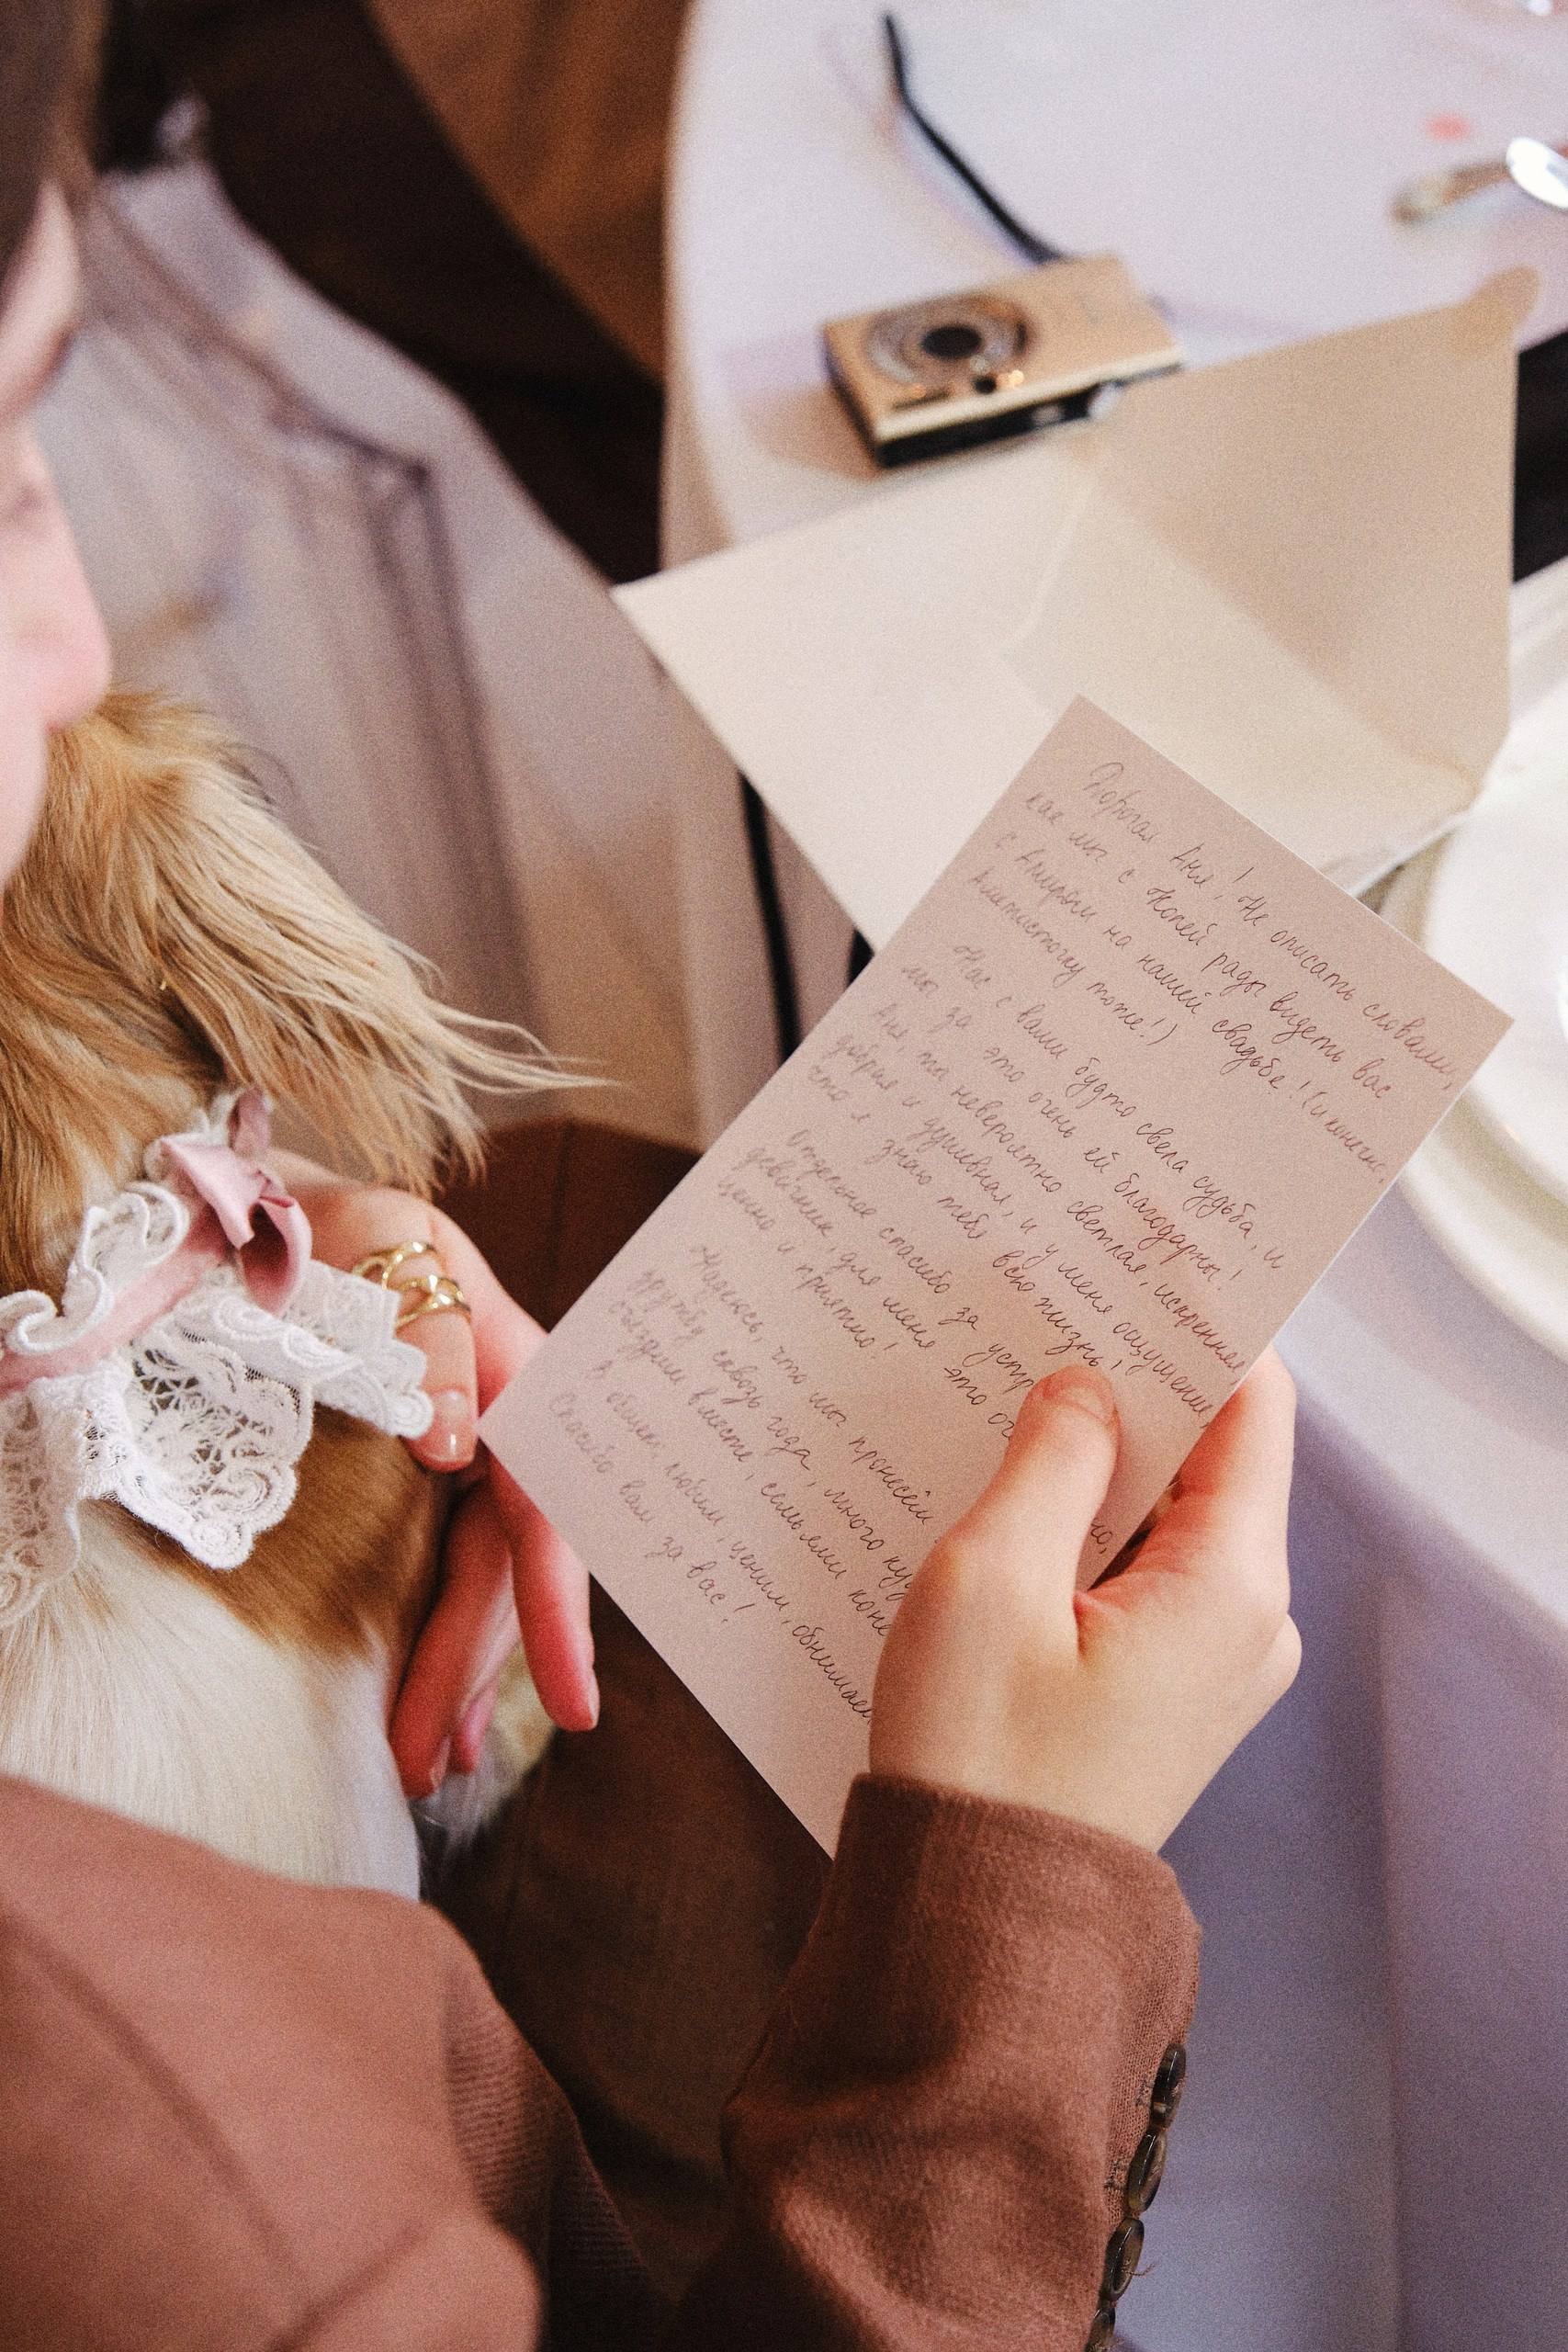 Дорогая Аня! Не описать словами,
как мы с Женей рады видеть вас
с на нашей свадьбе! (и конечно,
Аметисточку тоже!)
Нас с вами будто свела судьба, и
мы за это очень ей благодарны!
Аня, ты невероятно светлая, искренняя,
добрая и душевная, и у меня ощущение,
что я знаю тебя всю жизнь!
Отдельное спасибо за устр
девичник, для меня это оч
ценно и приятно!
Надеюсь, что мы пронесём но,
дружбу сквозь года, много
съездим вместе, семьями коне
В общем, любим, ценим, обнимаем
Спасибо вам за вас!